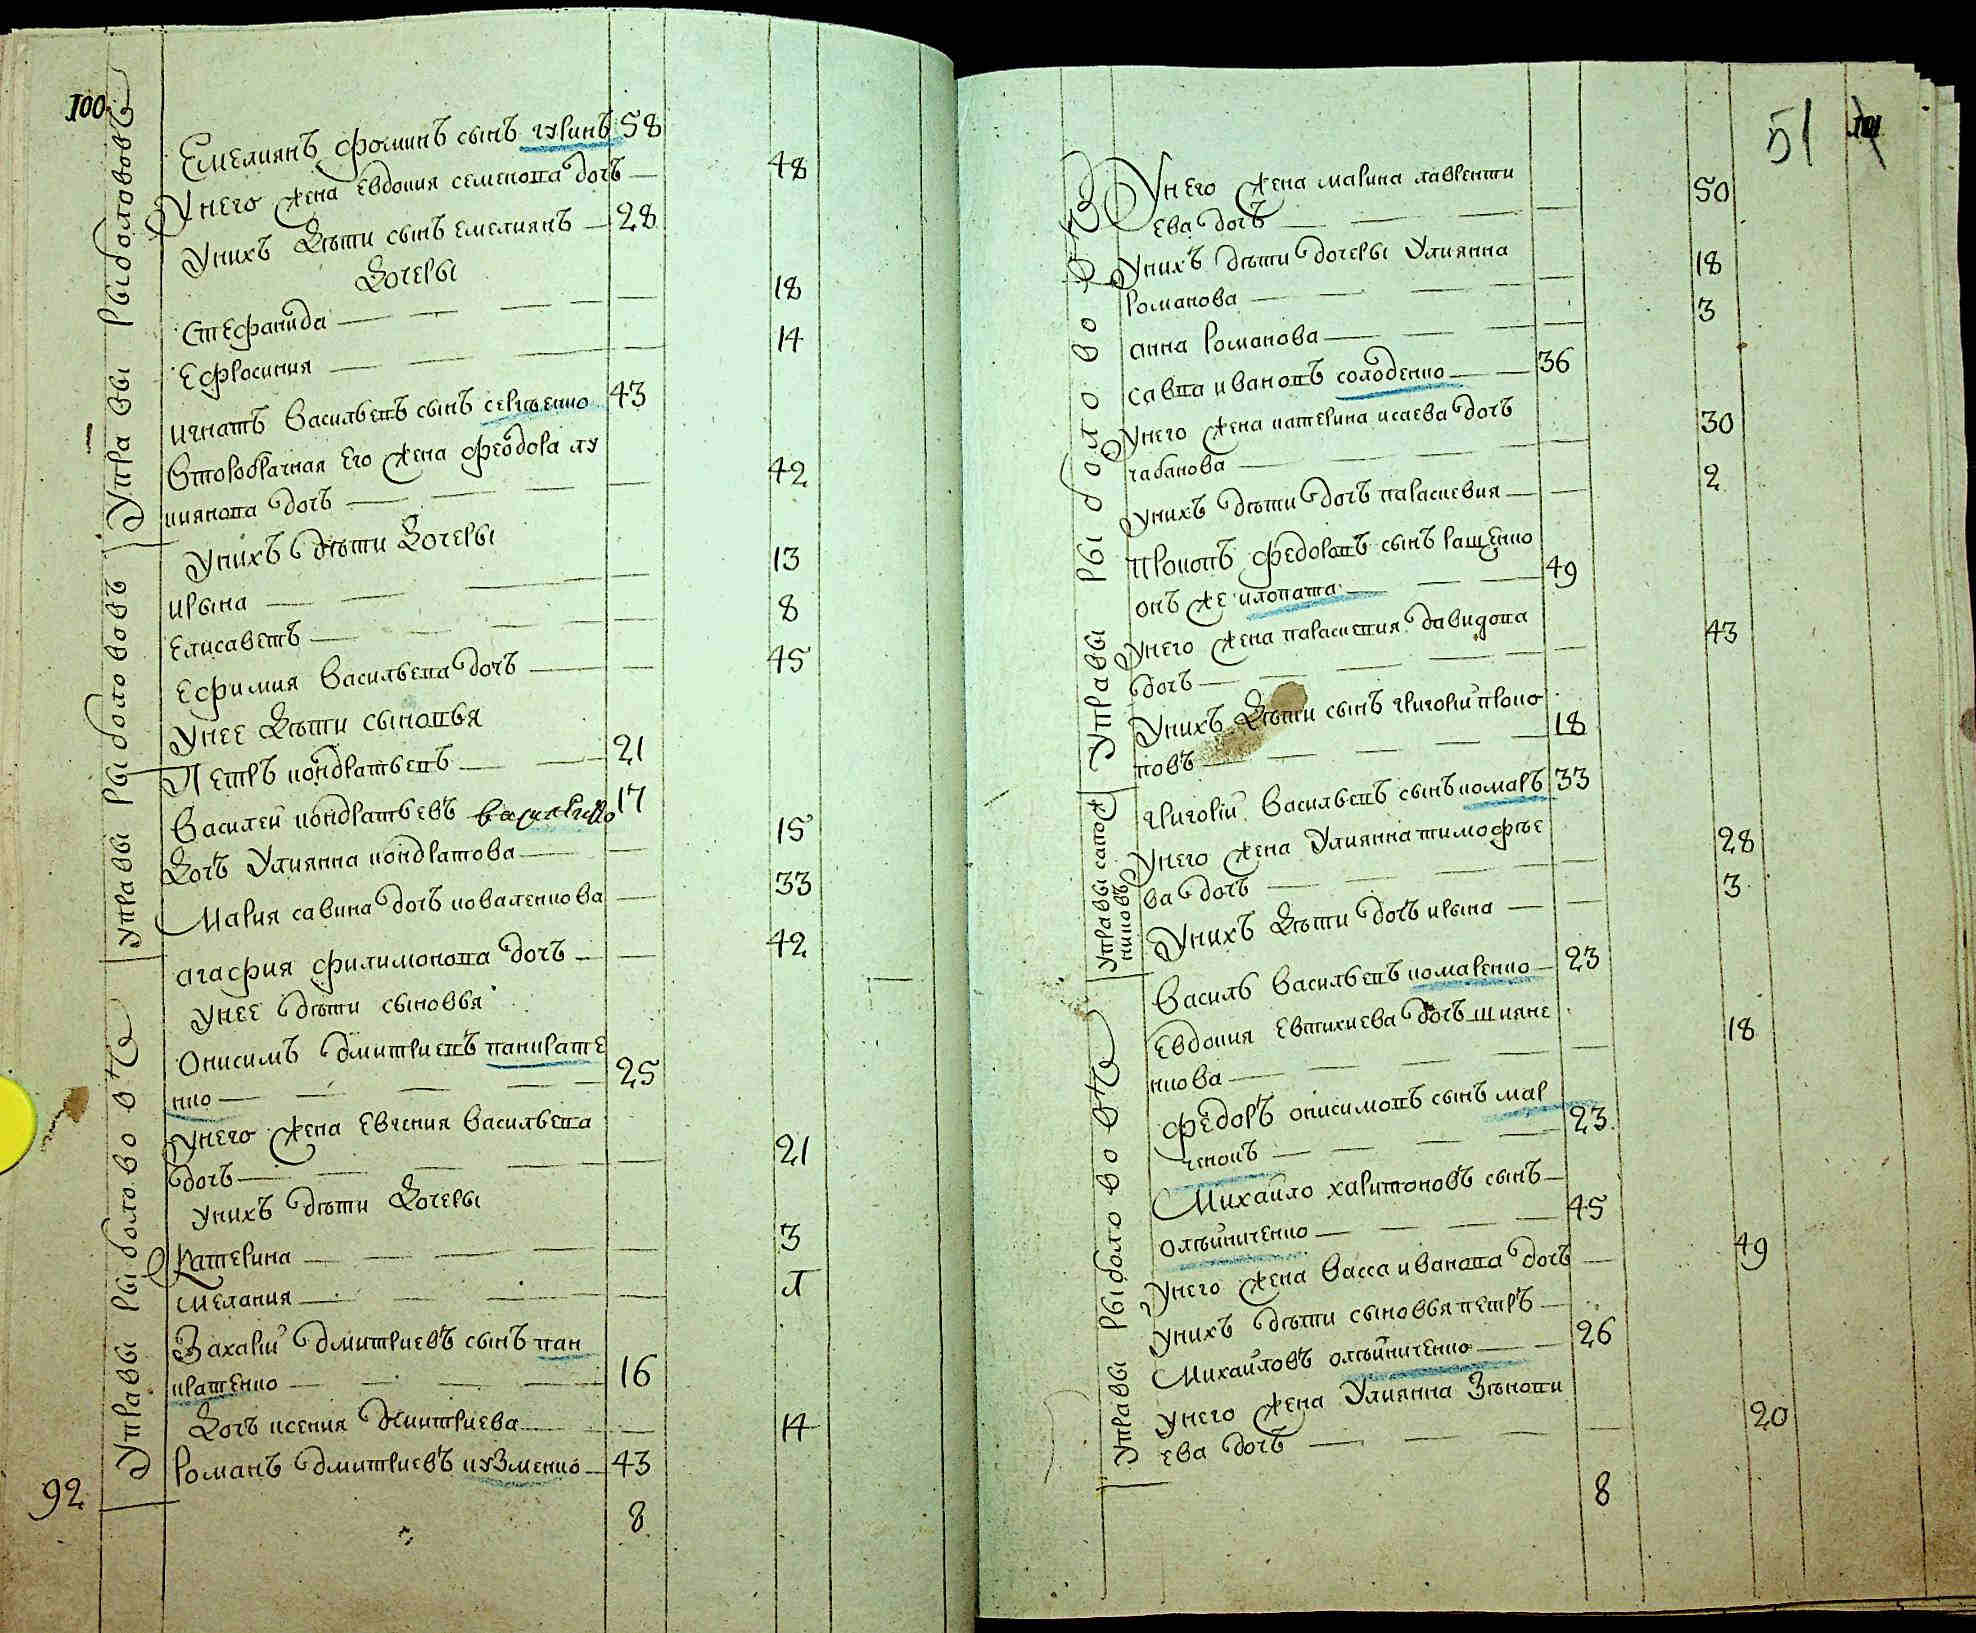 100
Емелиянъ фоминъ сынъ гуринъ 58
Унего жена евдокия семенова дочъ — 48
Унихъ дѣти сынъ емелиянъ — 28
Дочеры
Стефанида — 18
Ефросиния — 14
игнатъ васильевъ сынъ сергѣенко 43
второбрачная его жена феодора лу
кияновна дочъ — 42
Унихъ дѣти дочеры
ирына — 13
Елисаветъ — 8
Ефимия васильева дочъ — 45
Унее дѣти сыновья
Петръ кондратьевъ — 21
Василей кондратьевъ 17
Дочъ улиянна кондратова — 15
Мария савина дочъ коваленкова — 33
агафия филимонова дочъ — 42
Унее дѣти сыновья
Онисимъ дмитриевъ панкрате
нко — 25
Унего жена евгения васильева
дочъ — 21
Унихъ дѣти дочеры
Катерина — 3
Мелания — Л
Захарий дмитриевъ сынъ пан
кратенко — 16
Дочъ ксения дмитриева — 14
Романъ дмитриевъ кузменко — 43
8
92
Управы рыболововъ
Управы рыболововъ
Управы рыболовов
51
Унего жена марина лавренти
ева дочъ — 50
Унихъ дѣти дочеры улиянна
Романова — 18
анна Романова — 3
савва ивановъ солоденко — 36
Унего жена катерина исаева дочъ
чабанова — 30
Унихъ дѣти дочъ параскевия — 2
Прокопъ федоровъ сынъ ращенко
онъ же клопата — 49
Унего жена параскевия давидова
дочъ — 43
Унихъ дѣти сынъ григорий проко
повъ — 18
григорий васильевъ сынъ комаръ 33
Унего жена улиянна тимофѣе
ва дочъ — 28
Унихъ дѣти дочъ ирына — 3
Василь васильевъ комаренко — 23
Евдокия евтихиева дочъ шияне
нкова — 18
Федоръ онисимовъ сынъ мар
ченокъ — 23
Михайло харитоновъ сынъ —
олѣйниченко — 45
Унего жена васса иванова дочъ — 49
Унихъ дѣти сыновья петръ —
Михайловъ олѣйниченко — 26
Унего жена улиянна зѣнови
ева дочъ — 20
8
Управы рыболово
Управы сапож
никовъ
Управы рыболово